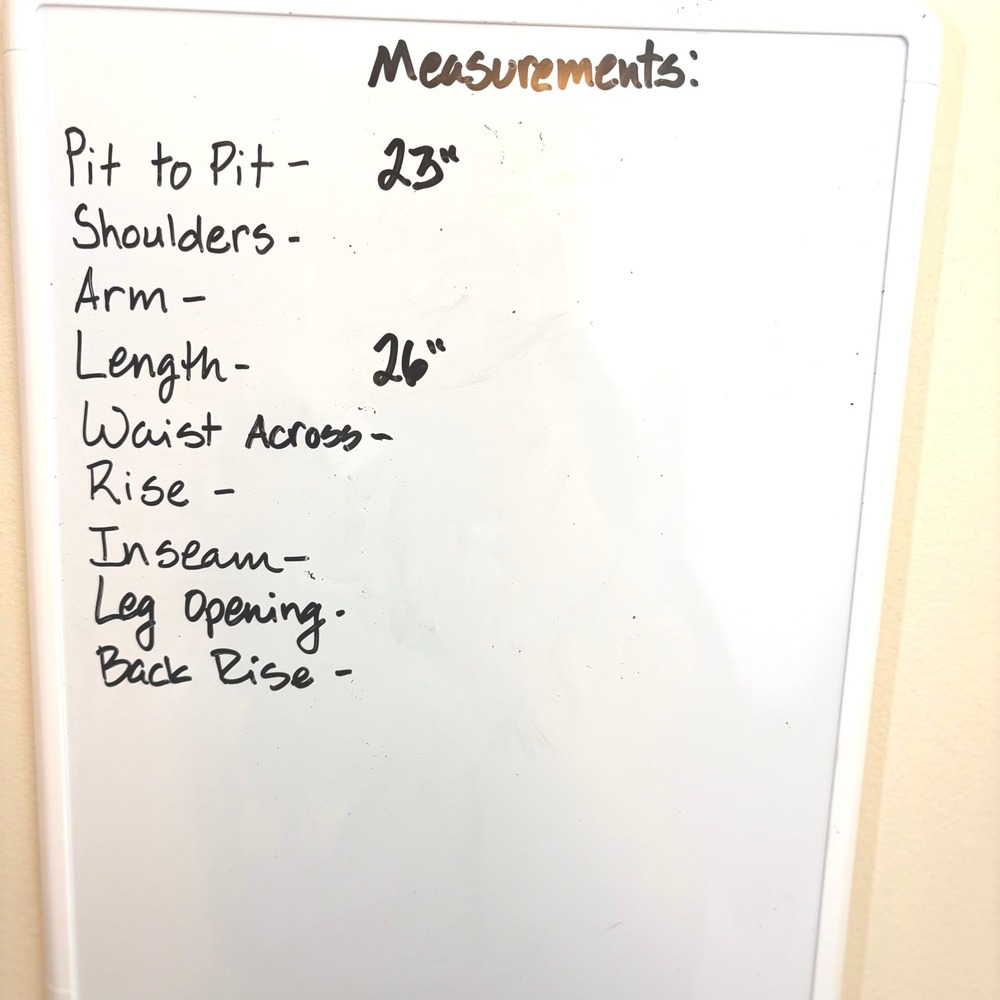 Measurements:
Pit to Pit - 23"
Shoulders -
Arm -
Length - 26"
Waist Across -
Rise -
Inseam -
Leg Opening -
Back Rise -